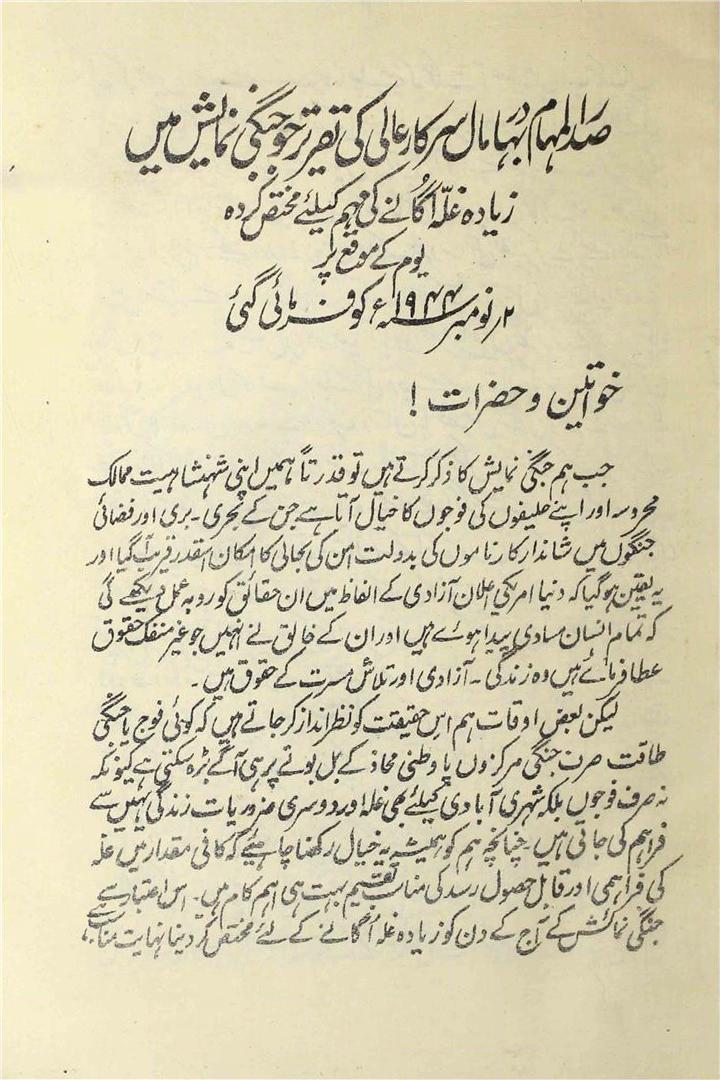 صدرالمہام بہادر مال سرکار عالی کی تقریر جو جنگی نمایش میں
زیادہ غلّہ اُگانے کی مہم کیلئے مختص کردہ
یوم کے موقع پر
۲؍نومبر ۱۹۴۴ء کو فرمائی گئی
خواتین و حضرات !
جب ہم جنگی نمایش کا ذکر کرتے ہیں تو قدرتاً ہمیں اپنی شہنشاہیت ممالک
محروسہ اور اپنے حلیفوں کی فوجوں کا خیال آتا ہے جن کے بحری۔ بری اور فضائی
جنگوں میں شاندار کارناموں کی بدولت امن کی بحالی کا امکان اسقدر قریب آگیا اور
یہ یقین ہوگیا کہ دنیا امریکی اعلان آزادی کے الفاظ میں ان حقائق کو روبہ عمل دیکھے گی
کہ تمام انسان مساوی پیدا ہوے ہیں اور ان کے خالق نے انہیں جو غیر منفک حقوق
عطا فرمائے ہیں وہ زندگی۔ آزادی اور تلاش مسرت کے حقوق ہیں۔
لیکن بعض اوقات ہم اس حقیقت کو نظر انداز کرجاتے ہیں کہ کوئی فوج یا جنگی
طاقت صرف جنگی مرکزوں یا وطنی محاذ کے بل بوتے پر ہی آگے بڑہ سکتی ہے کیونکہ
نہ صرف فوجوں بلکہ شہری آبادی کیلئے بھی غلہ اور دوسری ضروریات زندگی یہیں سے
فراہم کی جاتی ہیں۔ چنانچہ ہم کو ہمیشہ یہ خیال رکھنا چاہئیے کہ کافی مقدار میں غلہ
کی فراہمی اور قابل حصول رسد کی مناسب تقسیم بہت ہی اہم کام ہیں۔ اس اعتبار سے
جنگی نمائش کے آج کے دن کو زیادہ غلہ اُگانے کے لئے مختص کردینا نہایت مناسب ہے